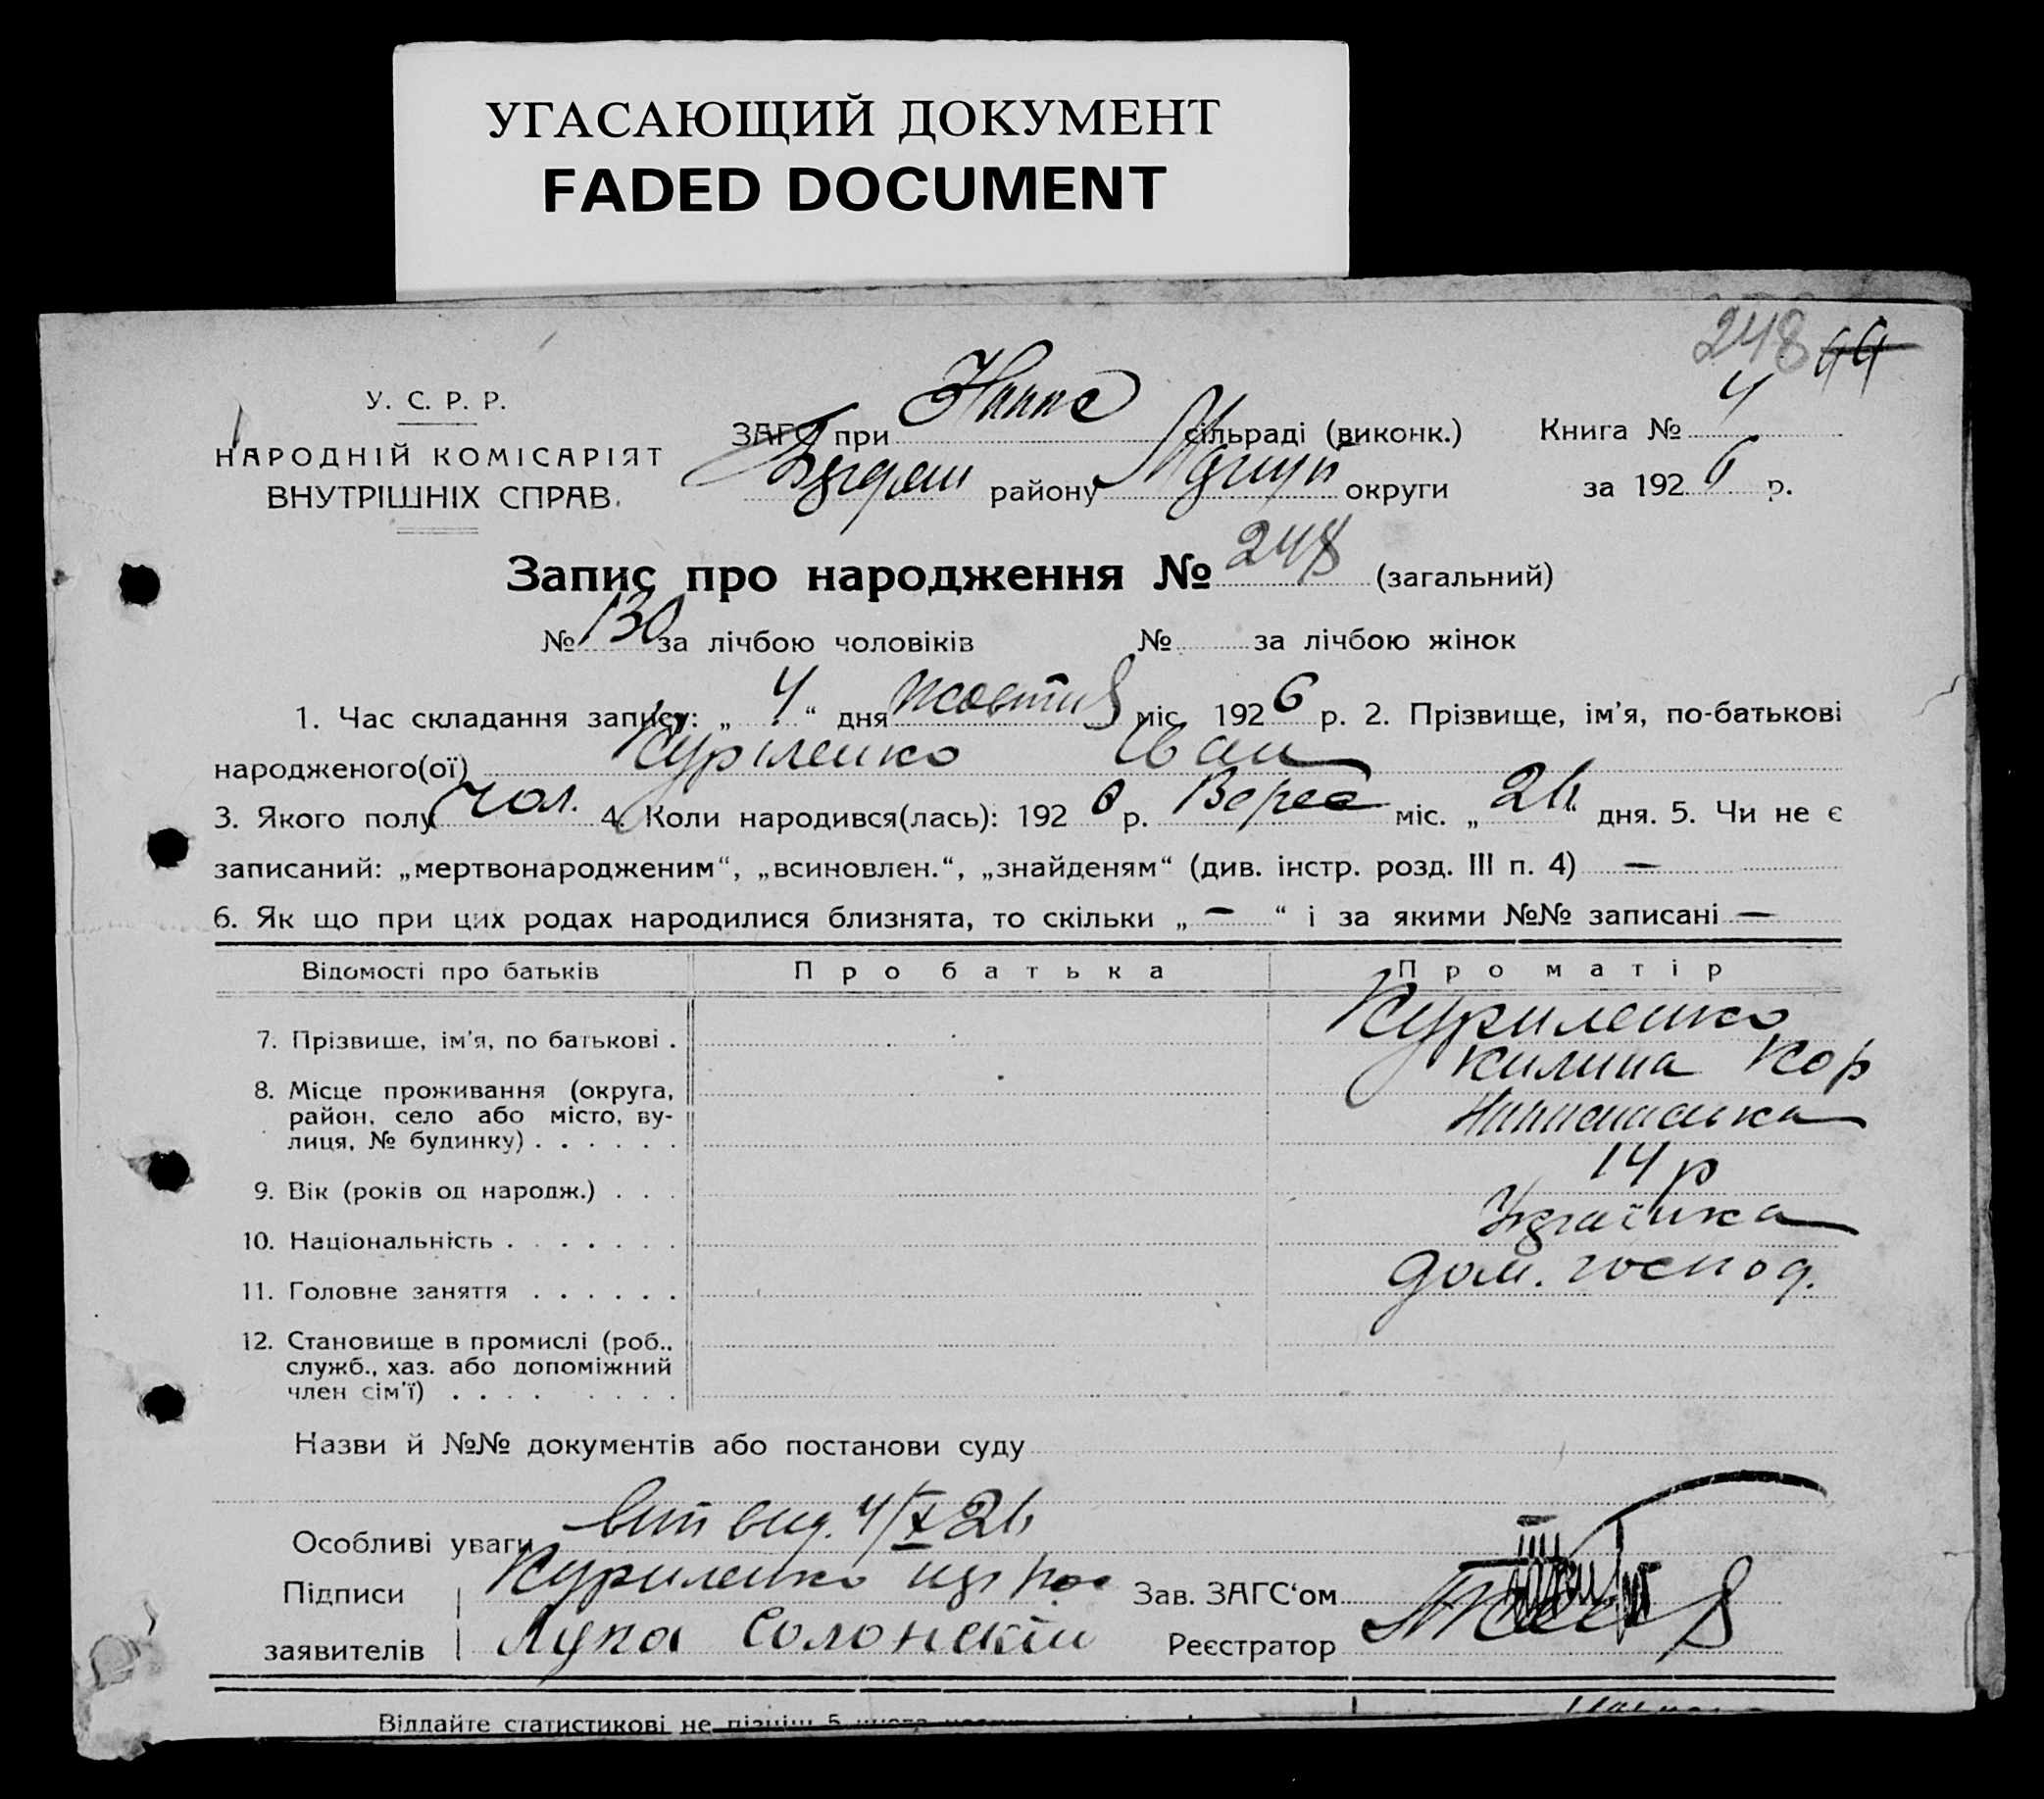 УГАСАЮЩИЙ ДОКУМЕНТ
FADED DOCUMENT
248 44
У. С. Р. Р.
НАРОДНІЙ КОМІСАРІЯТ
ВНУТРІШНІХ СПРАВ.
ЗАГС при сільраді (виконк.) Книга № 4
району округи за 1926 р.
Запис про народження № 248 (загальний)
№ 130 за лічбою чоловіків № за лічбою жінок
1. Час складання запису: „ 4 “ дня жовтня міс. 1926 р. 2. Прізвище, ім'я, по-батькові
народженого(ої) Куріленко Іван
3. Якого полу чол. 4. Коли народився(лась): 1926 р. Верес міс. „ 26 “ дня. 5. Чи не є
записаний: „мертвонародженим“, „всиновлен.“, „знайденям“ (див. інстр. розд. III п. 4) —
6. Як що при цих родах народилися близнята, то скільки „ — “ і за якими №№ записані —
Відомості про батьків Про батька Про матір
7. Прізвище, ім'я, по батькові . Куриленко
Килина Кор
8. Місце проживання (округа,
район, село або місто, ву-
лиця, № будинку) . . . . . .
9. Вік (років од народж.) . . . 14 р
10. Національність . . . . . . . Українка
11. Головне заняття . . . . . . Дом. господ.
12. Становище в промислі (роб.,
служб., хаз. або допоміжний
член сім'ї) . . . . . . . .
Назви й №№ документів або постанови суду
Особливі уваги вид. 4/X 26
Підписи Куриленко Зав. ЗАГС'ом
заявителів Лука Солонскій Реєстратор
Віддайте статистикові не пізніш 5